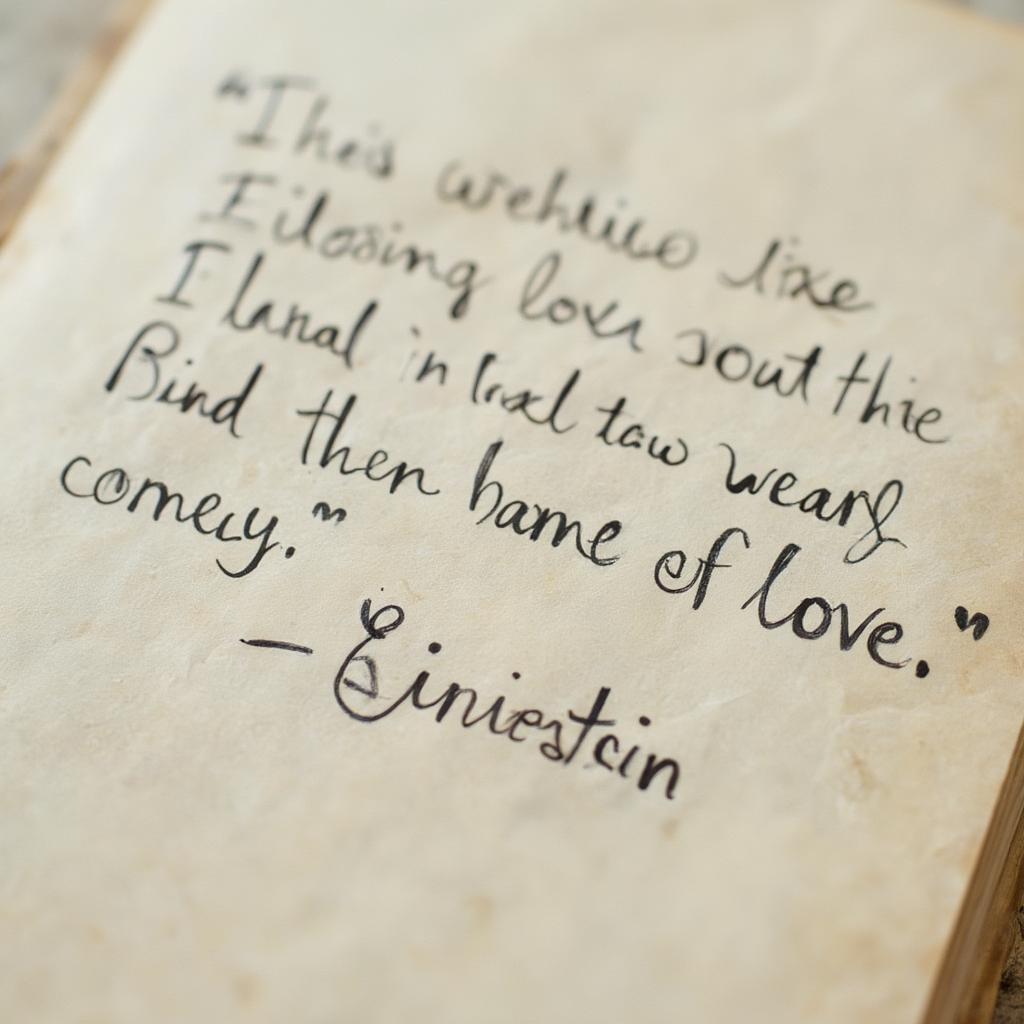 "Iheis wehtico lixe
Eilosing lova sout thie
I lanal in lrxl taw wearg
Bind then hame of love."
comecy."
— Einiestein